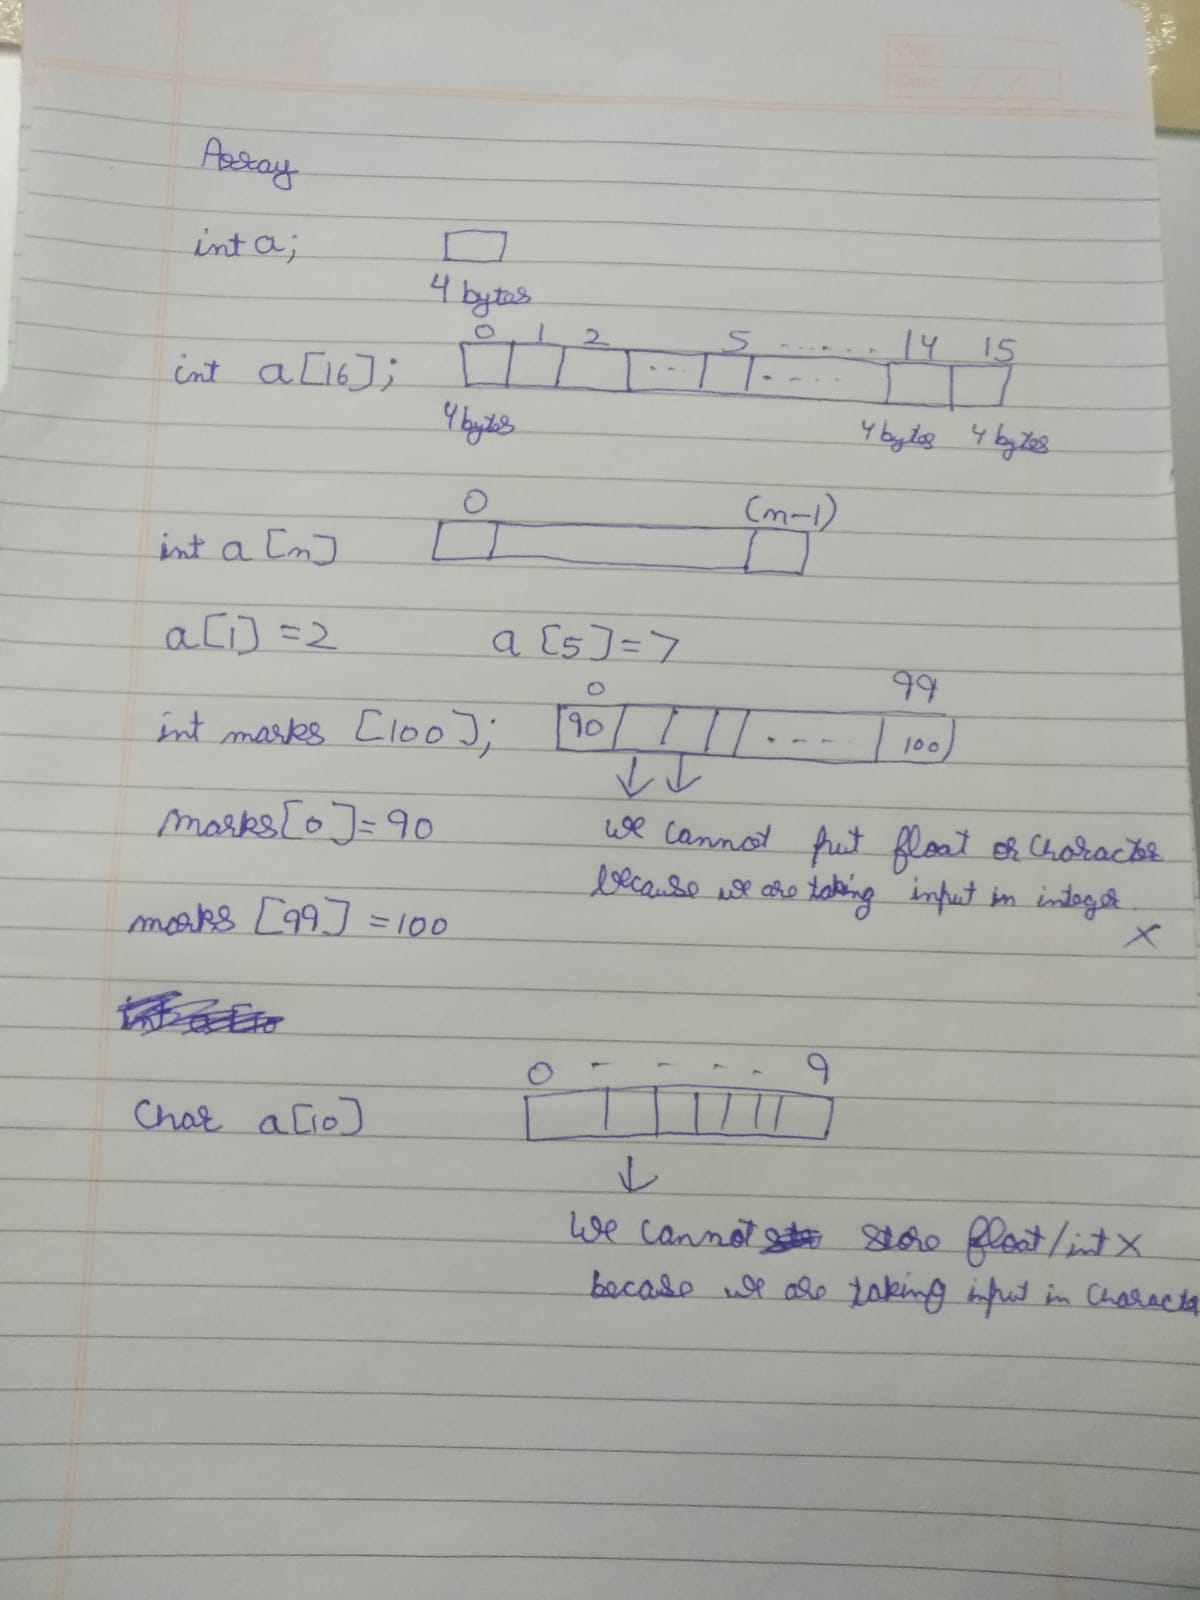 Page
Date: / /
Array
int a;
4 bytes
0 1 2 5 ...... 14 15
int a[16]; ... .....
4 bytes 4 bytes 4 bytes
0 (n-1)
int a [n]
a[1] =2 a [5]=7
0 99
int marks [100]; 90 ..... 100
marks[0]=90 we cannot put float or character
because we are taking input in integer.
marks [99] =100 X
0 - - - - 9
Char a[10]
We cannot store float/int X
becase we are taking input in Character